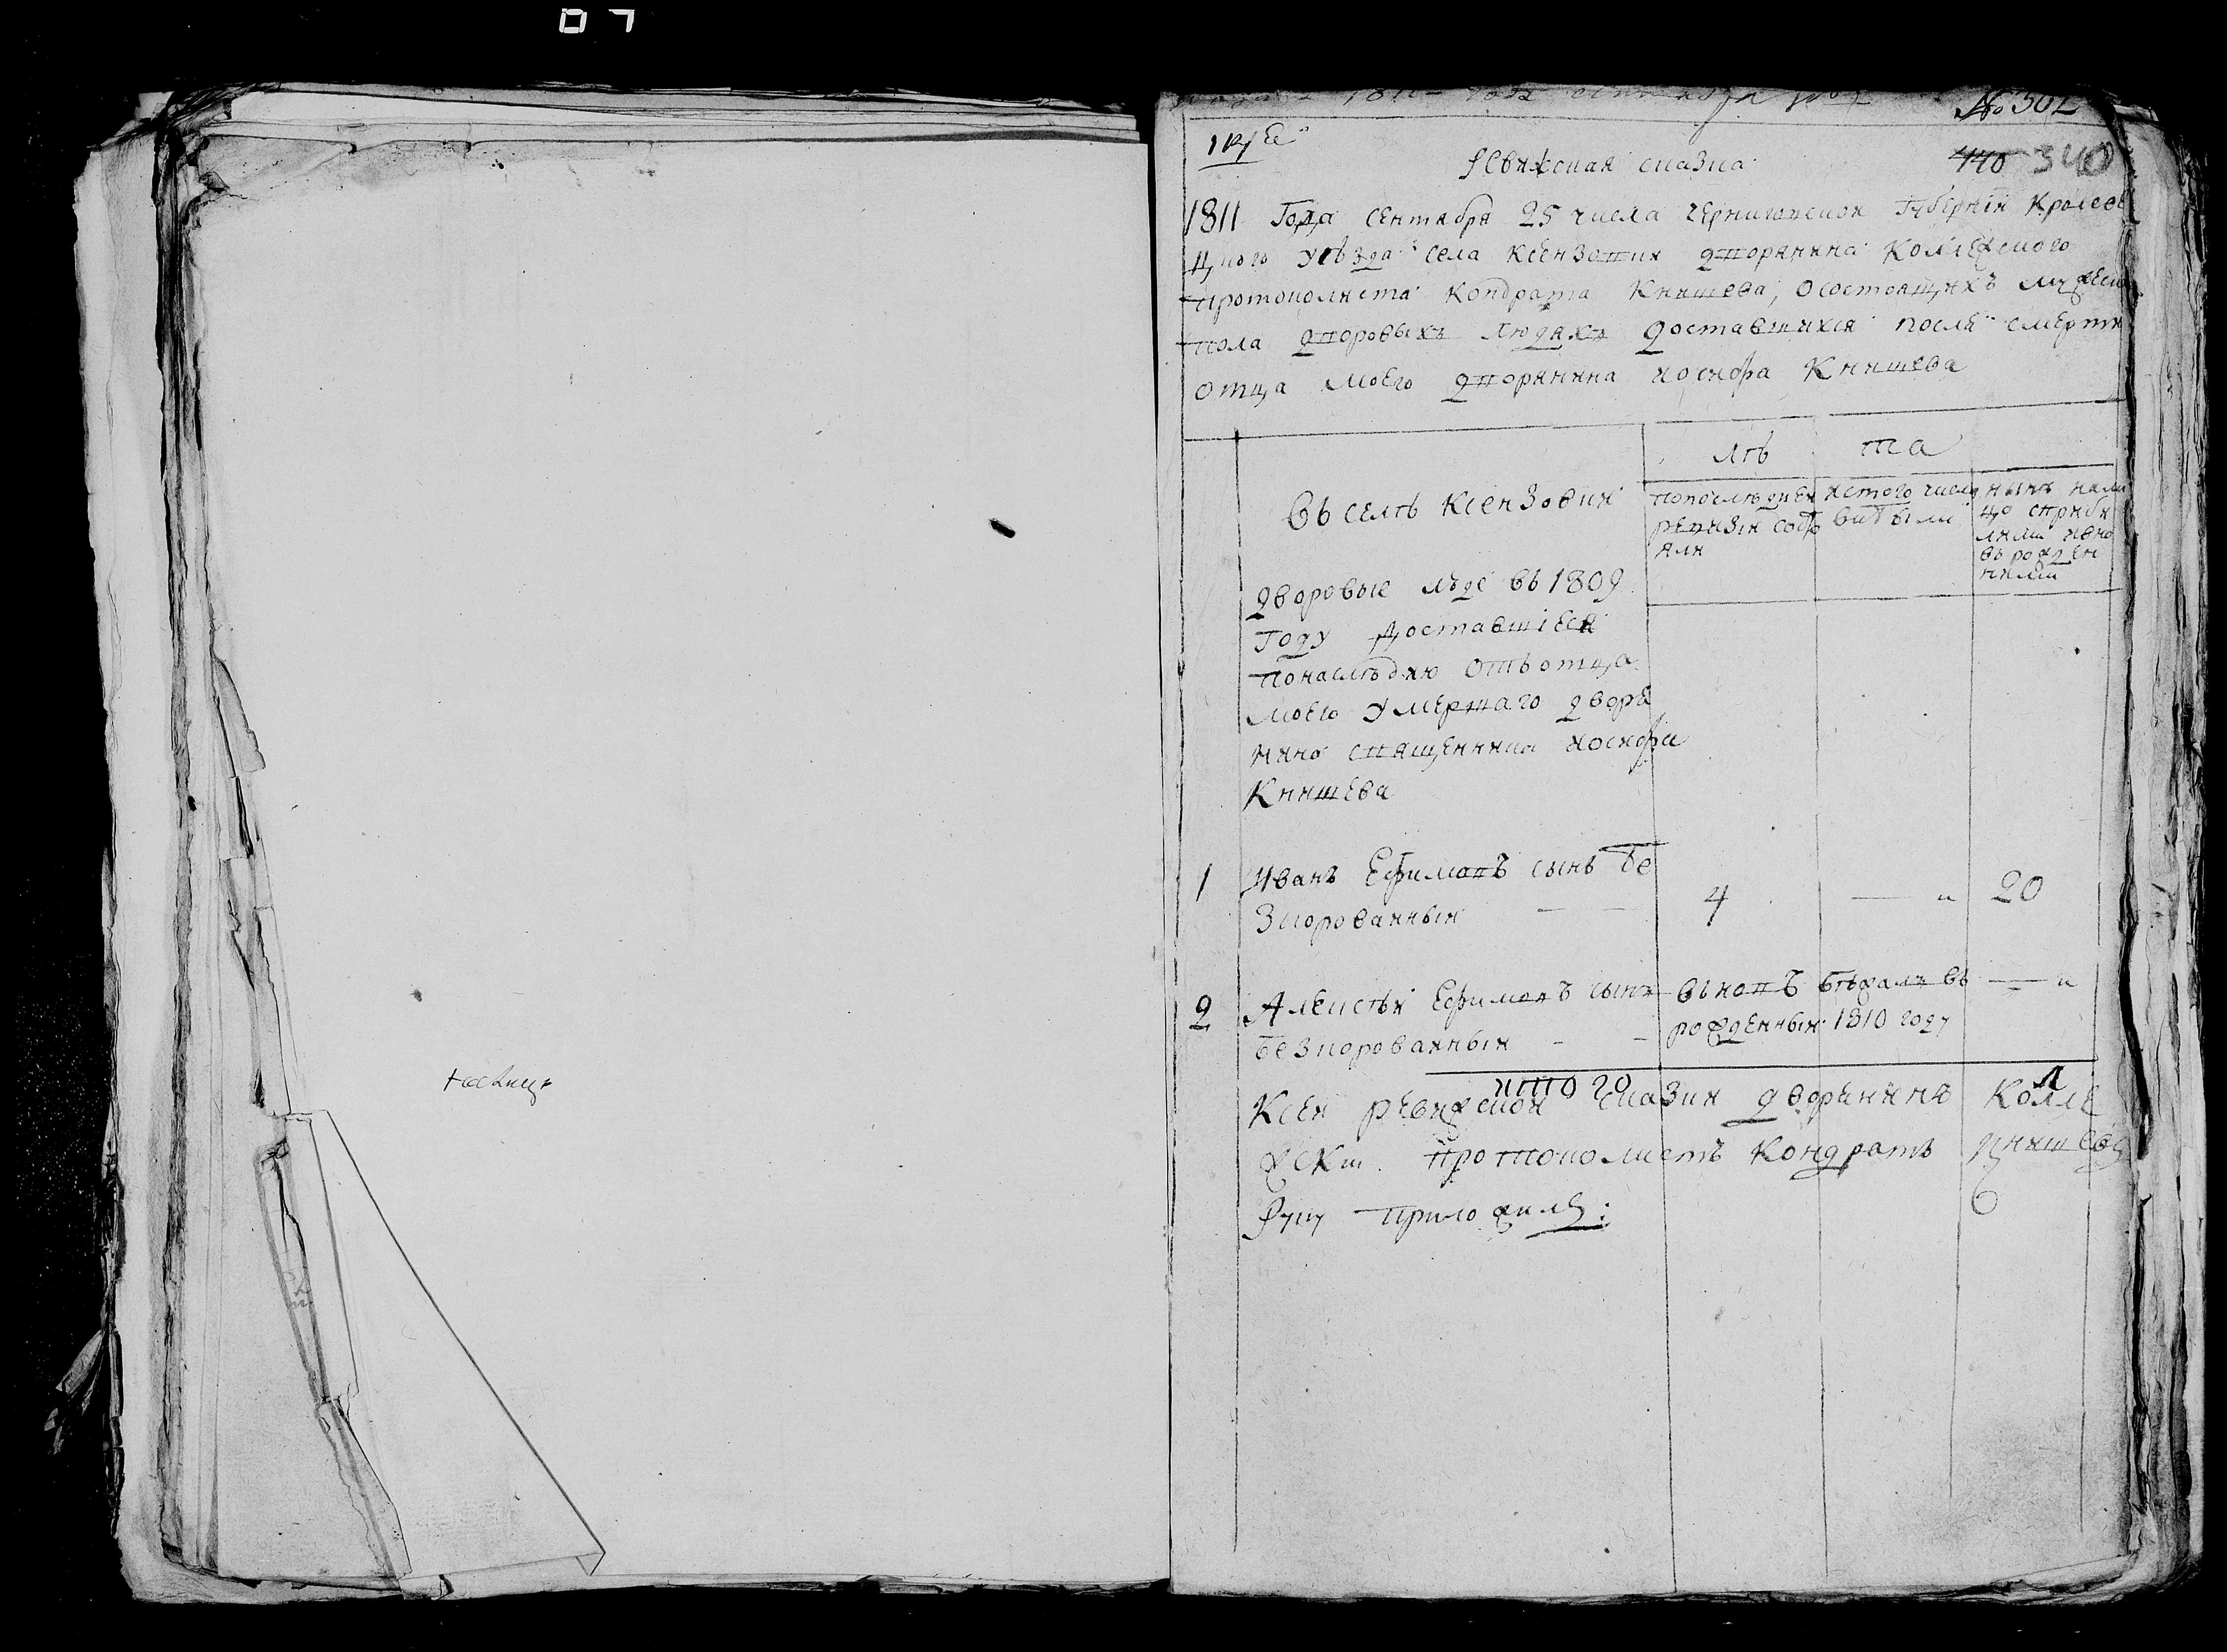 07
№ 302
440 340
Ревизская сказка
1811 Года сентября 25 числа черниговской Губернїи Кролеве
цкого уѣзда села Ксензовки дворянина Колежского
протоколиста Кондрата Книшева, о состоящихъ мужеска
пола дворовыхъ людяхъ доставшихся после смерти
отца моего дворянина иосифа Книшева
лѣ та
Въ селѣ Ксензовки
попоследней ревизїи состо яли
изтого числа выбыли
нынѣ нали цо сприбы лими ивно въ рожден ними
дворовые люде въ 1809
Году доставшїеся
понаследию отъ отца
моего умершаго дворя
нина священника иосифа
Книшева
1 Иванъ Ефимовъ сынъ бе
зкорованный — — 4 — „ 20
2 Алексѣй Ефимовъ сынъ вьновъ бѣжалъ въ — „
безкорованный - - рожденный 1810 году
итого 1
Ксей ревизской сказки дворянинъ Колле
жски. протоколистъ Кондратъ Книшевъ
Руку приложилъ: